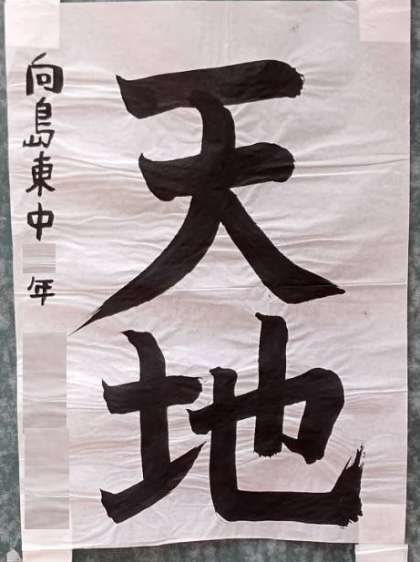 天地
向島東中 年